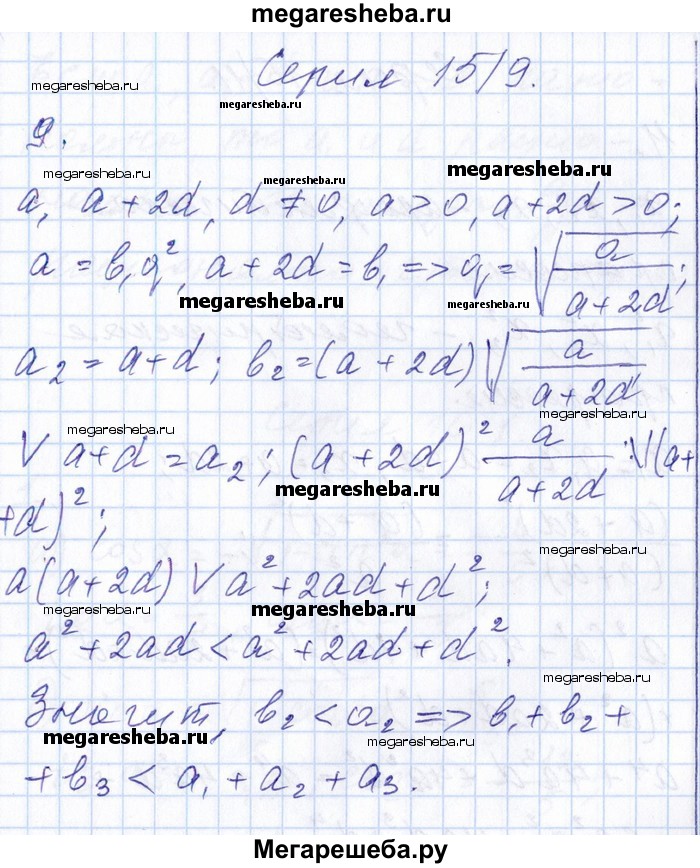 megaresheba.ru
Серия 15/9.
megaresheba.ru
megaresheba.ru
9.
megaresheba.ru
megaresheba.ru
megaresheba.ru
a, a + 2d, d ≠ 0, a > 0, a + 2d > 0;
a = b₁q², a + 2d = b₁ => q = √(a/(a + 2d));
megaresheba.ru
megaresheba.ru
a₂ = a + d; b₂ = (a + 2d)√(a/(a + 2d))
megaresheba.ru
megaresheba.ru
V a + d = a₂; (a + 2d)² a/(a + 2d) : V (a +
megaresheba.ru
+ d)²;
megaresheba.ru
a(a + 2d) V a² + 2ad + d²;
megaresheba.ru
megaresheba.ru
a² + 2ad < a² + 2ad + d².
megaresheba.ru
Значит, b₂ < a₂ => b₁ + b₂ +
megaresheba.ru
megaresheba.ru
+ b₃ < a₁ + a₂ + a₃.
Мегарешеба.ру